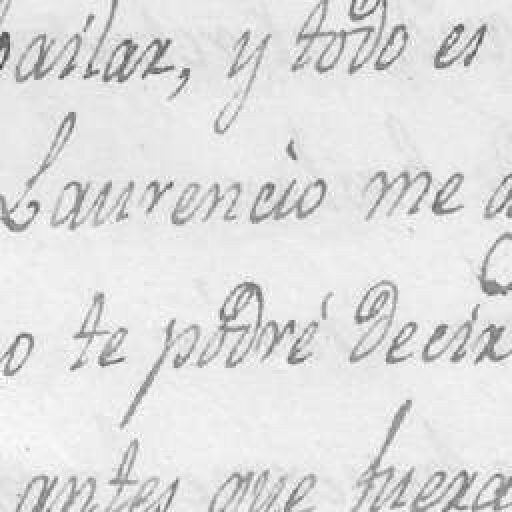 bailar, y todo es
Laurencio me
o te podré decir
antes que fuera